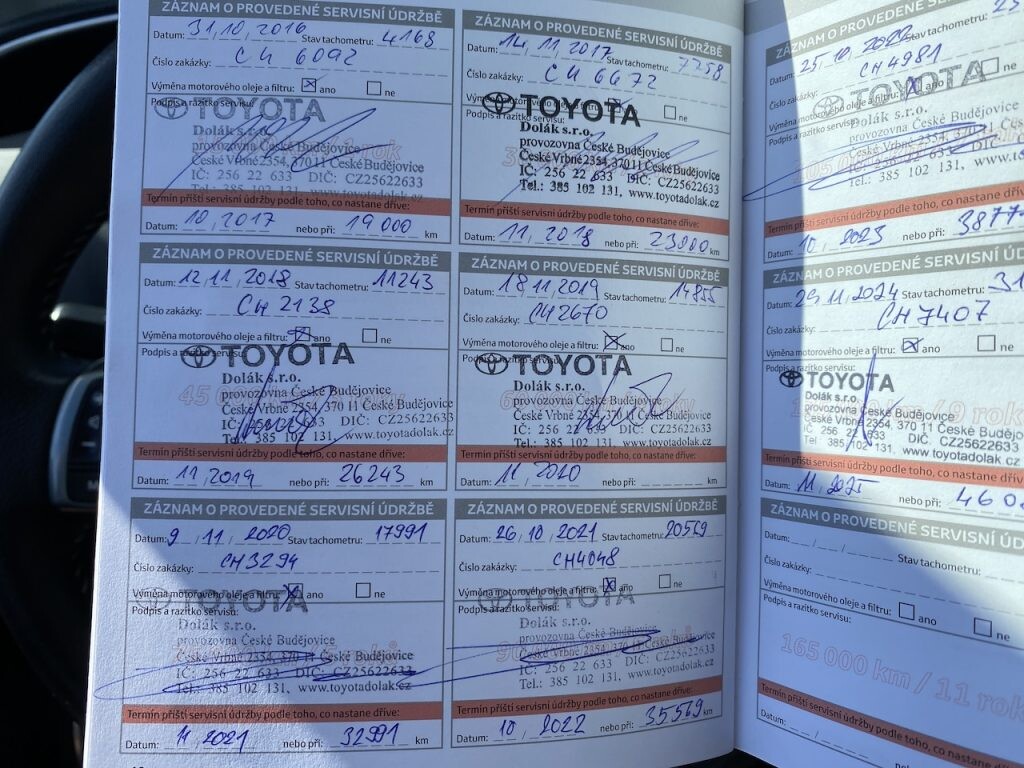 ZÁZNAM O PROVEDENÉ SERVISNÍ ÚDRŽBĚ
Datum: 31, 10, 2016 Stav tachometru: 4168
Číslo zakázky: CH 6092
Výměna motorového oleje a filtru: ano ne
Podpis a razítko servisu:
TOYOTA
Dolák s.r.o.
provozovna České Budějovice
České Vrbné 2354, 370 11 České Budějovice
IČ: 256 22 633 DIČ: CZ25622633
Tel.: 385 102 131, www.toyotadolak.cz
Termín příští servisní údržby podle toho, co nastane dříve:
Datum: 10, 2017 nebo při: 19 000 km
ZÁZNAM O PROVEDENÉ SERVISNÍ ÚDRŽBĚ
Datum: 14, 11, 2017 Stav tachometru: 7758
Číslo zakázky: CH 6672
ne
TOYOTA
Dolák s.r.o.
provozovna České Budějovice
České Vrbné 2354, 370 11 České Budějovice
IČ: 256 22 633 DIČ: CZ25622633
Tel.: 385 102 131, www.toyotadolak.cz
Termín příští servisní údržby podle toho, co nastane dříve:
Datum: 11, 2018 nebo při: 23000 km
ZÁZNAM O PROVEDENÉ SERVISNÍ ÚDRŽBĚ
Datum: 12, 11, 2018 Stav tachometru: 11243
Číslo zakázky: CH 2138
Výměna motorového oleje a filtru: ano ne
Podpis a razítko servisu:
TOYOTA
Dolák s.r.o.
provozovna České Budějovice
České Vrbné 2354, 370 11 České Budějovice
IČ: 256 22 633 DIČ: CZ25622633
Tel.: 385 102 131, www.toyotadolak.cz
Termín příští servisní údržby podle toho, co nastane dříve:
Datum: 11, 2019 nebo při: 26243 km
ZÁZNAM O PROVEDENÉ SERVISNÍ ÚDRŽBĚ
Datum: 18, 11, 2019 Stav tachometru: 14855
Číslo zakázky: CH2670
Výměna motorového oleje a filtru: ano ne
Podpis a razítko servisu:
TOYOTA
Dolák s.r.o.
provozovna České Budějovice
České Vrbné 2354, 370 11 České Budějovice
IČ: 256 22 633 DIČ: CZ25622633
Tel.: 385 102 131, www.toyotadolak.cz
Termín příští servisní údržby podle toho, co nastane dříve:
Datum: 11, 2020 nebo při: km
ZÁZNAM O PROVEDENÉ SERVISNÍ ÚDRŽBĚ
Datum: 9, 11, 2020 Stav tachometru: 17991
Číslo zakázky: CH3294
Výměna motorového oleje a filtru: ano ne
TOYOTA
Podpis a razítko servisu:
Dolák s.r.o.
provozovna České Budějovice
České Vrbné 2354, 370 11 České Budějovice
IČ: 256 22 633 DIČ: CZ25622633
Tel.: 385 102 131, www.toyotadolak.cz
Termín příští servisní údržby podle toho, co nastane dříve:
Datum: 11, 2021 nebo při: 32991 km
ZÁZNAM O PROVEDENÉ SERVISNÍ ÚDRŽBĚ
Datum: 26, 10, 2021 Stav tachometru: 20569
Číslo zakázky: CH4048
Výměna motorového oleje a filtru: ano ne
TOYOTA
Podpis a razítko servisu:
Dolák s.r.o.
provozovna České Budějovice
České Vrbné 2354, 370 11 České Budějovice
IČ: 256 22 633 DIČ: CZ25622633
Tel.: 385 102 131, www.toyotadolak.cz
Termín příští servisní údržby podle toho, co nastane dříve:
Datum: 10, 2022 nebo při: 35569 km
ZÁZNAM O PROVEDENÉ SERVISNÍ ÚD
Datum: 25, 10, 2022 Stav tachometru:
Číslo zakázky: CH4981
Výměna motorového oleje a filtru: ano
TOYOTA
Podpis a razítko servisu:
Dolák s.r.o.
provozovna České Budějovice
Termín příští servisní údržby podle toho, co nastane dříve
Datum: 10, 2023 nebo při: 3877
ZÁZNAM O PROVEDENÉ SERVISNÍ ÚD
Datum: 25, 11, 2024 Stav tachometru: 31
Číslo zakázky: CH7407
Výměna motorového oleje a filtru: ano ne
Podpis a razítko servisu:
TOYOTA
Dolák s.r.o.
provozovna České Budějovice
České Vrbné 2354, 370 11 České Budějo
IČ: 256 22 633 DIČ: CZ25622
Tel.: 385 102 131, www.toyotadolak.cz
Termín příští servisní údržby podle toho, co nastane dříve
Datum: 11, 2025 nebo při: 460
ZÁZNAM O PROVEDENÉ SERVISNÍ ÚD
Datum: Stav tachometru:
Číslo zakázky:
Výměna motorového oleje a filtru: ano ne
Podpis a razítko servisu:
165 000 km / 11 rok
Termín příští servisní údržby podle toho, co nastane
Datum: nebo při: